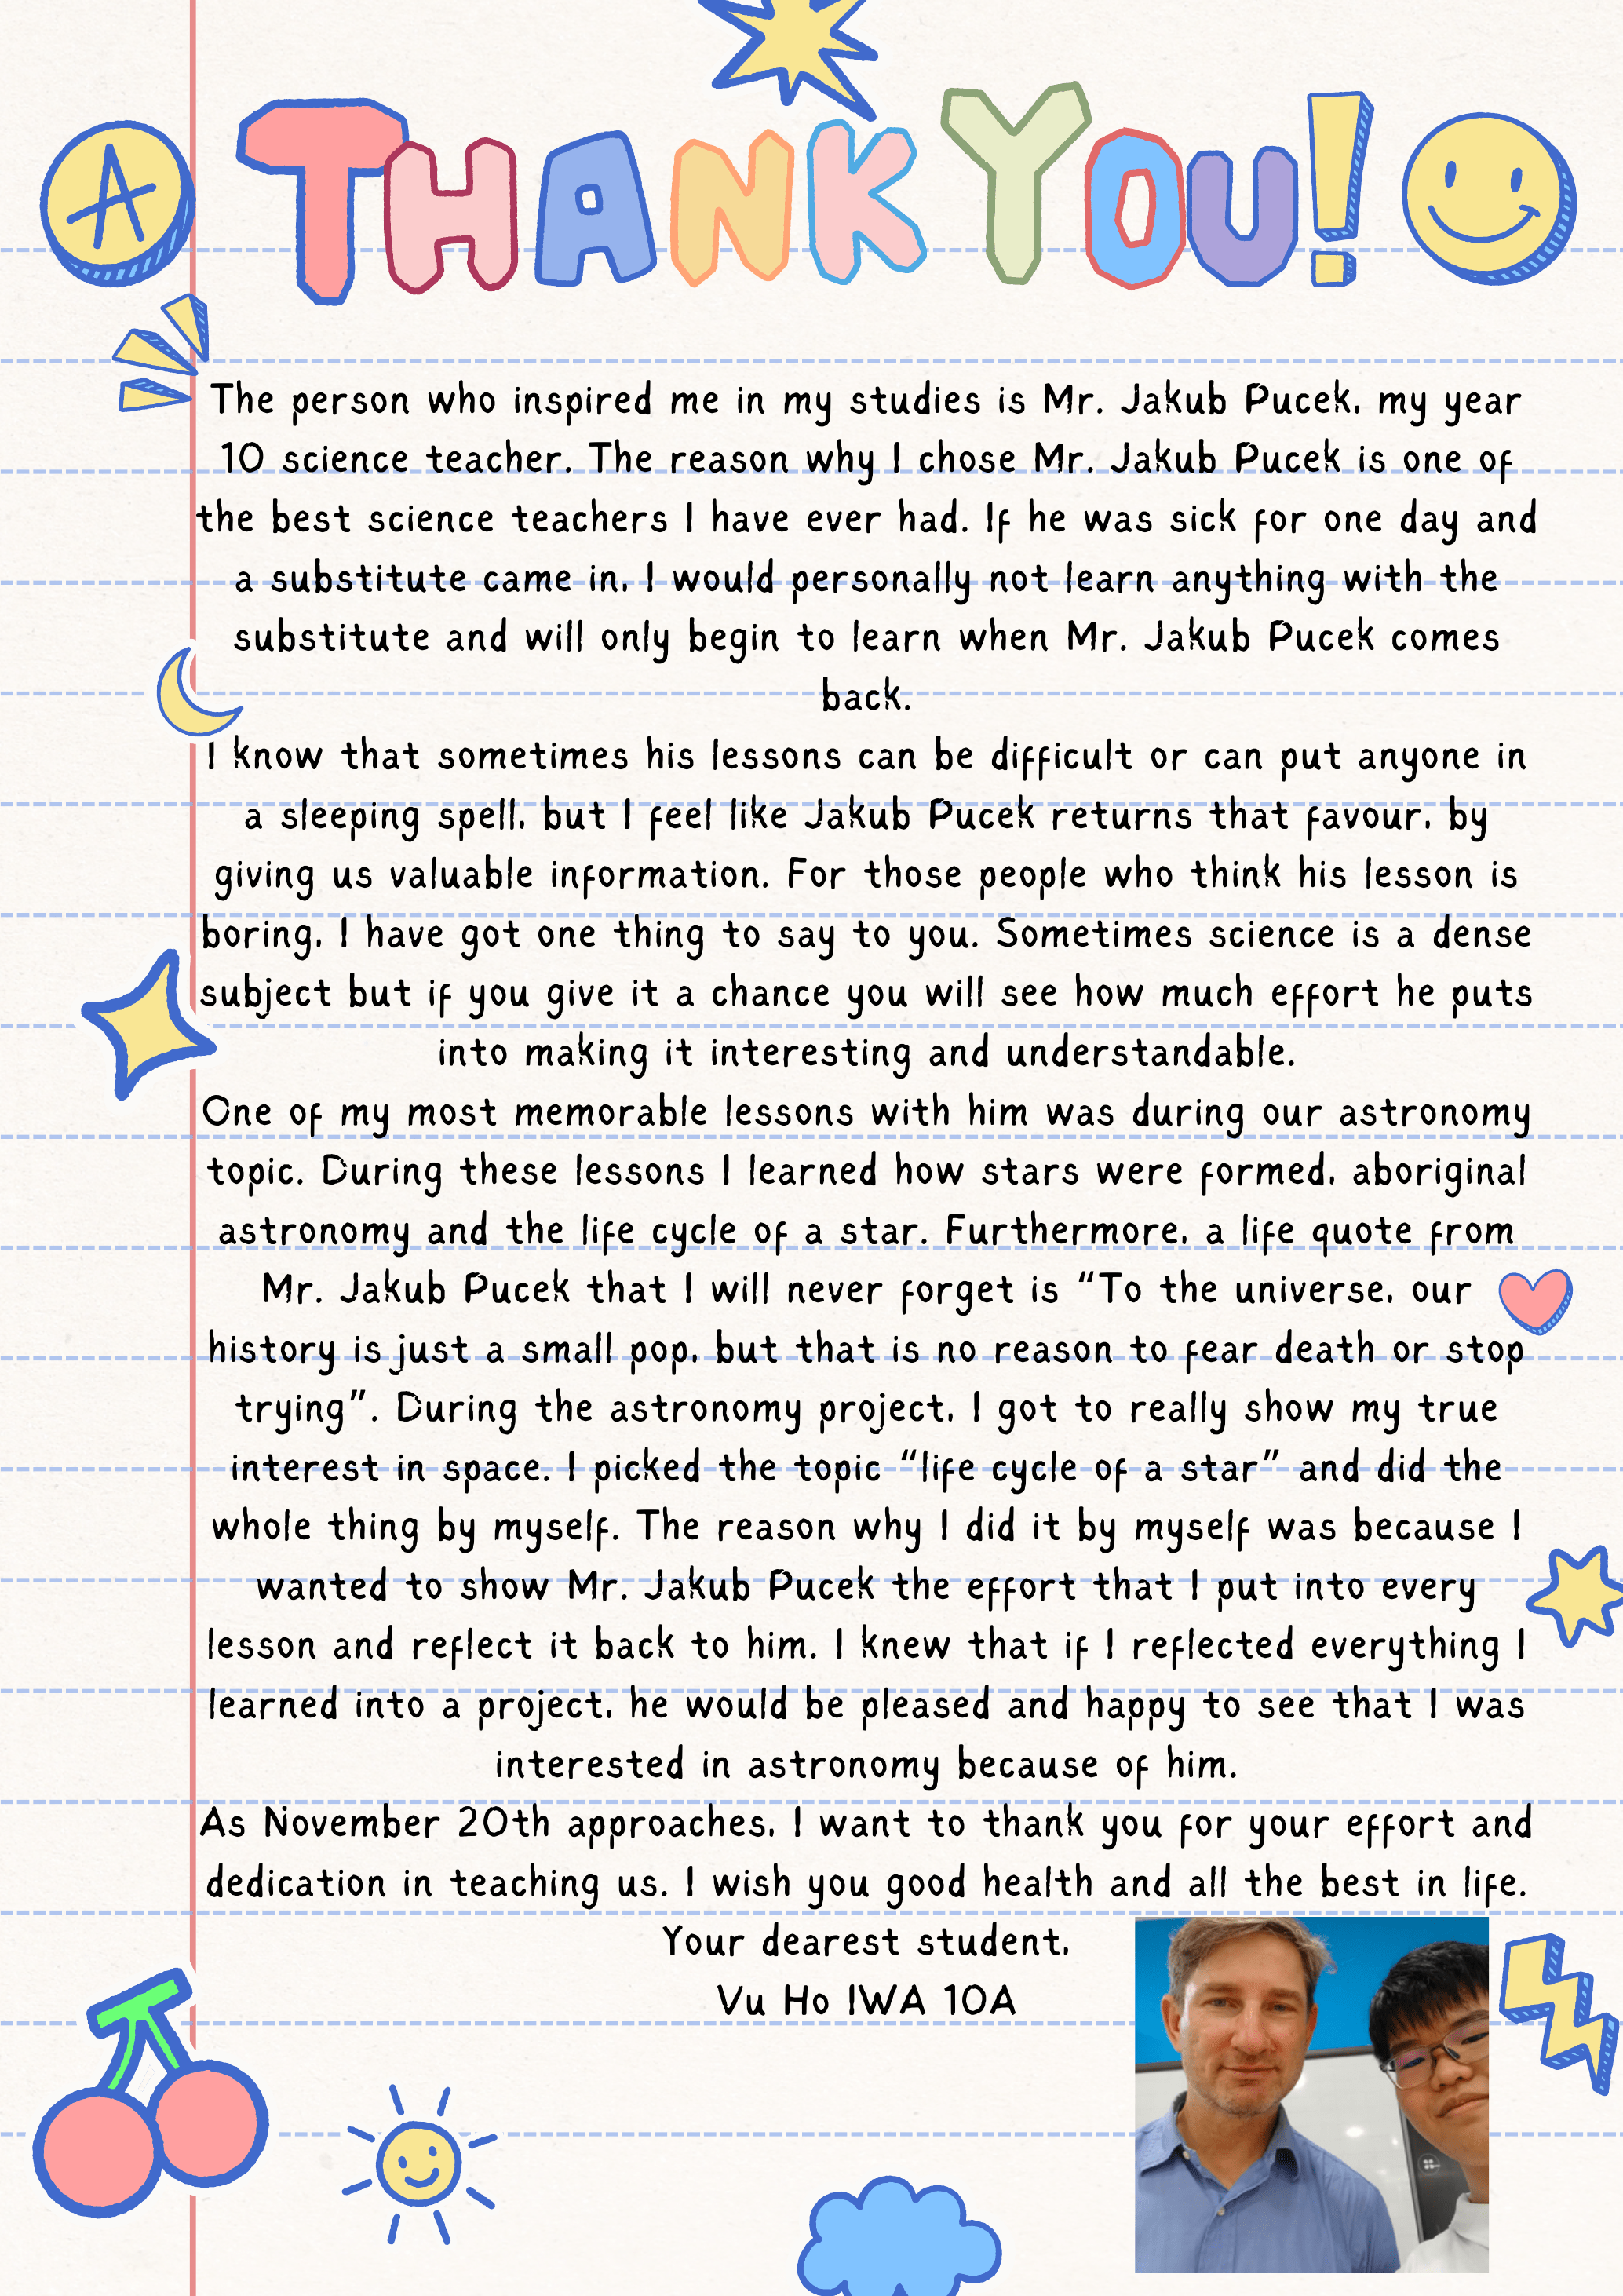 A
THANK YOU!
The person who inspired me in my studies is Mr. Jakub Pucek, my year
10 science teacher. The reason why I chose Mr. Jakub Pucek is one of
the best science teachers I have ever had. If he was sick for one day and
a substitute came in, I would personally not learn anything with the
substitute and will only begin to learn when Mr. Jakub Pucek comes
back.
I know that sometimes his lessons can be difficult or can put anyone in
a sleeping spell, but I feel like Jakub Pucek returns that favour, by
giving us valuable information. For those people who think his lesson is
boring, I have got one thing to say to you. Sometimes science is a dense
subject but if you give it a chance you will see how much effort he puts
into making it interesting and understandable.
One of my most memorable lessons with him was during our astronomy
topic. During these lessons I learned how stars were formed, aboriginal
astronomy and the life cycle of a star. Furthermore, a life quote from
Mr. Jakub Pucek that I will never forget is “To the universe, our
history is just a small pop, but that is no reason to fear death or stop
trying”. During the astronomy project, I got to really show my true
interest in space. I picked the topic “life cycle of a star” and did the
whole thing by myself. The reason why I did it by myself was because I
wanted to show Mr. Jakub Pucek the effort that I put into every
lesson and reflect it back to him. I knew that if I reflected everything I
learned into a project, he would be pleased and happy to see that I was
interested in astronomy because of him.
As November 20th approaches, I want to thank you for your effort and
dedication in teaching us. I wish you good health and all the best in life.
Your dearest student,
Vu Ho IWA 10A